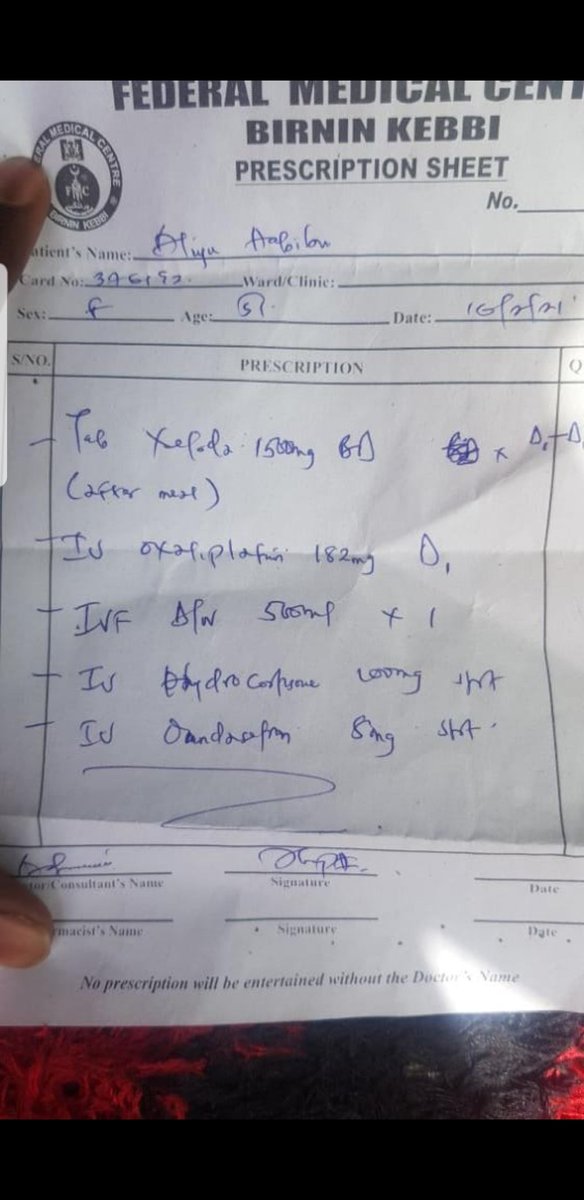 FEDERAL MEDICAL CENT
BIRNIN KEBBI
PRESCRIPTION SHEET
No.
RAL MEDICAL CENTRE
FMC
BIRNIN KEBBI
atient's Name: Aliyu
Card No: 396192 Ward/Clinic:
Sex: F Age: Date: 16/2/21
S/NO. PRESCRIPTION Q
- Tab Xeloda 1500mg BD x D1-D
(after meal)
- IV oxaliplatin 182mg D1
- IVF D/W 500ml x 1
- IV Hydrocortisone 100mg stat
- IV Ondasetron 8mg stat
tor/Consultant's Name Signature Date
rmacist's Name Signature Date
No prescription will be entertained without the Doctor's Name